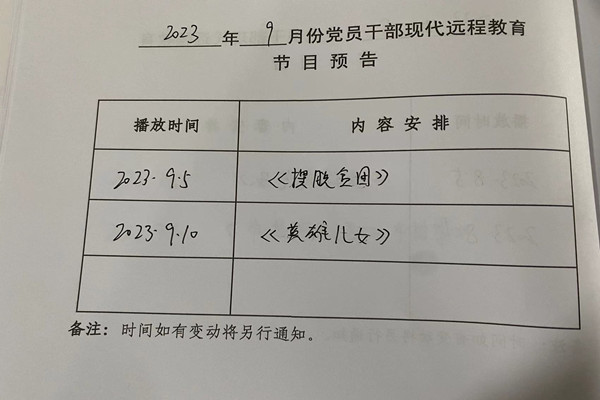 2023 年 9 月份党员干部现代远程教育
节目预告
播放时间 内容安排
2023.9.5 《摆脱贫困》
2023.9.10 《英雄儿女》
备注：时间如有变动将另行通知。